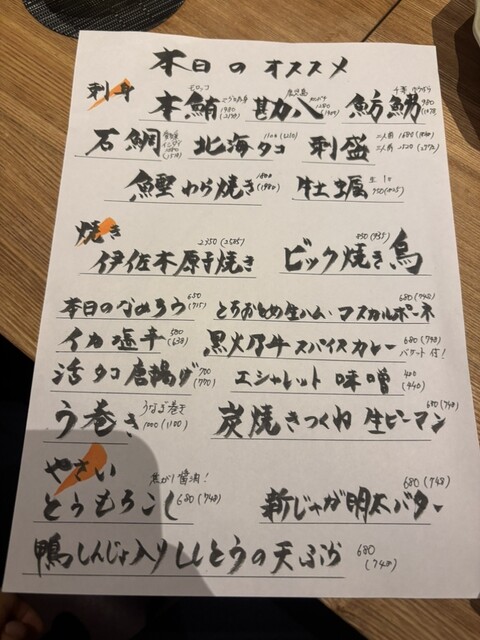 本日のオススメ
刺身
本鮪 モロッコ 1980 勘八 鹿児島 1280 魴鮄 千葉 980
石鯛 北海タコ 1100 (1210) 刺盛 二人前 1680
鰹わら焼き 1800 (1980) 牡蠣 生 1ヶ
焼き
伊佐木原子焼き 2350 (2585) ビック焼き鳥 850 (935)
本日のなめろう 650 (715) とちおとめ生ハム・マスカルポーネ 680 (748)
イカ塩辛 580 (638) 黒火乃牛スパイスカレー 680 (748) バケット付!
活タコ唐揚げ 700 (770) エシャレット味噌 400 (440)
う巻き うなぎ巻き 1000 (1100) 炭焼きつくね生ピーマン 680 (748)
やさい
とうもろこし 焦がし醤油! 680 (748) 新じゃが明太バター 680 (748)
鴨しんじょ入りししとうの天ぷら 680 (748)